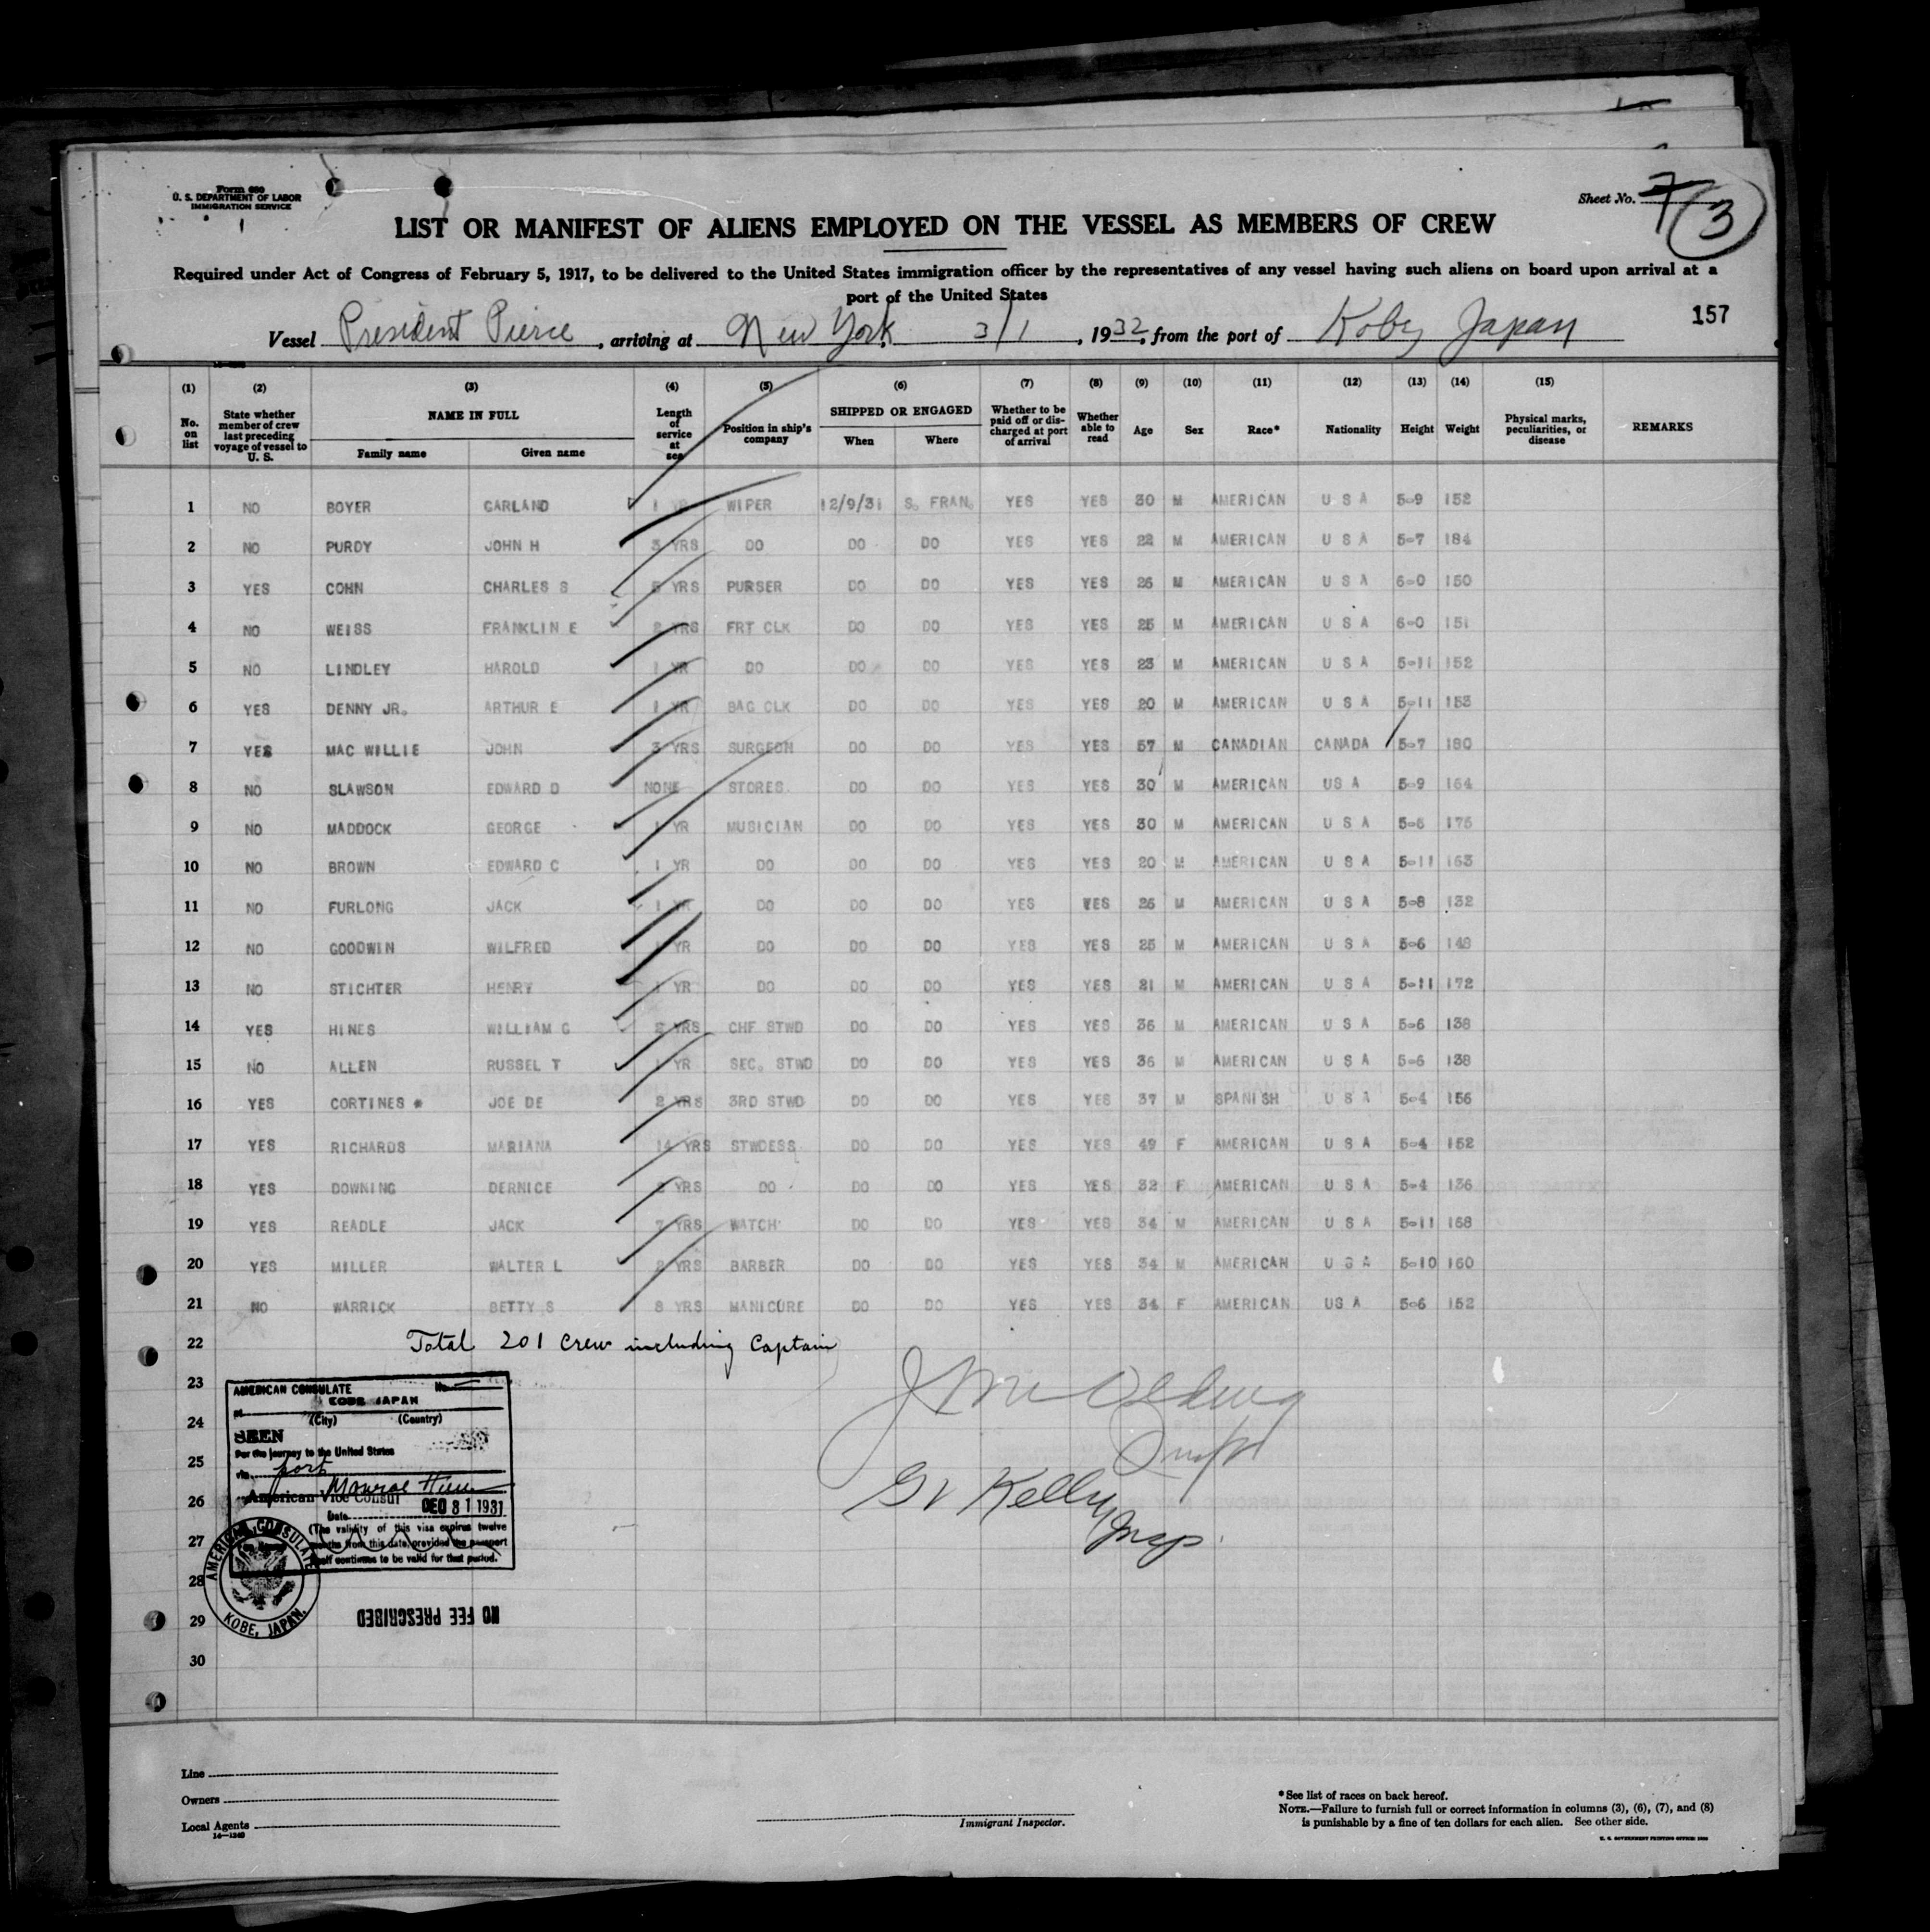 Form 680
U. S. DEPARTMENT OF LABOR
IMMIGRATION SERVICE
Sheet No. 7 3
LIST OR MANIFEST OF ALIENS EMPLOYED ON THE VESSEL AS MEMBERS OF CREW
Required under Act of Congress of February 5, 1917, to be delivered to the United States immigration officer by the representatives of any vessel having such aliens on board upon arrival at a
port of the United States
157
Vessel President Pierce, arriving at New York, 3/1, 1932, from the port of Koby Japan
(1) (2) (3) (4) (5) (6) (7) (8) (9) (10) (11) (12) (13) (14) (15)
No. on list State whether member of crew last preceding voyage of vessel to U. S. NAME IN FULL Family name Given name Length of service at sea Position in ship's company SHIPPED OR ENGAGED When Where Whether to be paid off or discharged at port of arrival Whether able to read Age Sex Race* Nationality Height Weight Physical marks, peculiarities, or disease REMARKS
1 NO BOYER GARLAND 1 YR WIPER 12/9/31 S. FRAN. YES YES 30 M AMERICAN U S A 5-9 152
2 NO PURDY JOHN H 3 YRS DO DO DO YES YES 22 M AMERICAN U S A 5-7 184
3 YES COHN CHARLES S YRS PURSER DO DO YES YES 26 M AMERICAN U S A 6-0 150
4 NO WEISS FRANKLIN E 2 YRS FRT CLK DO DO YES YES 25 M AMERICAN U S A 6-0 151
5 NO LINDLEY HAROLD 1 YR DO DO DO YES YES 23 M AMERICAN U S A 5-11 152
6 YES DENNY JR. ARTHUR E 1 YR BAG CLK DO DO YES YES 20 M AMERICAN U S A 5-11 153
7 YES MAC WILLIE JOHN 3 YRS SURGEON DO DO YES YES 57 M CANADIAN CANADA 5-7 180
8 NO SLAWSON EDWARD D NONE STORES DO DO YES YES 30 M AMERICAN US A 5-9 164
9 NO MADDOCK GEORGE 1 YR MUSICIAN DO DO YES YES 30 M AMERICAN U S A 5-6 175
10 NO BROWN EDWARD C 1 YR DO DO DO YES YES 20 M AMERICAN U S A 5-11 163
11 NO FURLONG JACK 1 YR DO DO DO YES YES 26 M AMERICAN U S A 5-8 132
12 NO GOODWIN WILFRED 1 YR DO DO DO YES YES 25 M AMERICAN U S A 5-6 148
13 NO STICHTER HENRY 1 YR DO DO DO YES YES 21 M AMERICAN U S A 5-11 172
14 YES HINES WILLIAM G YRS CHF STWD DO DO YES YES 36 M AMERICAN U S A 5-6 138
15 NO ALLEN RUSSEL T 1 YR SEC. STWD DO DO YES YES 36 M AMERICAN U S A 5-6 138
16 YES CORTINES * JOE DE 2 YRS 3RD STWD DO DO YES YES 37 M SPANISH U S A 5-4 156
17 YES RICHARDS MARIANA 14 YRS STWDESS DO DO YES YES 49 F AMERICAN U S A 5-4 152
18 YES DOWNING DERNICE YRS DO DO DO YES YES 32 F AMERICAN U S A 5-4 136
19 YES READLE JACK 7 YRS WATCH DO DO YES YES 34 M AMERICAN U S A 5-11 168
20 YES MILLER WALTER L YRS BARBER DO DO YES YES 34 M AMERICAN U S A 5-10 160
21 NO WARRICK BETTY S 8 YRS MANICURE DO DO YES YES 34 F AMERICAN US A 5-6 152
22 Total 201 Crew including Captain
23
24
25
26
27
28
29
30
AMERICAN CONSULATE No.
at KOBE JAPAN
(City) (Country)
SEEN
For the journey to the United States
via port
American Vice Consul
Date DEC 31 1931
(The validity of this visa expires twelve
months from this date, provided the passport
itself continues to be valid for that period.
AMERICAN CONSULATE
KOBE, JAPAN.
NO FEE PRESCRIBED
GV Kelly
Insp.
Line
Owners
Local Agents
14—1240
Immigrant Inspector.
*See list of races on back hereof.
NOTE.—Failure to furnish full or correct information in columns (3), (6), (7), and (8)
is punishable by a fine of ten dollars for each alien. See other side.
U. S. GOVERNMENT PRINTING OFFICE: